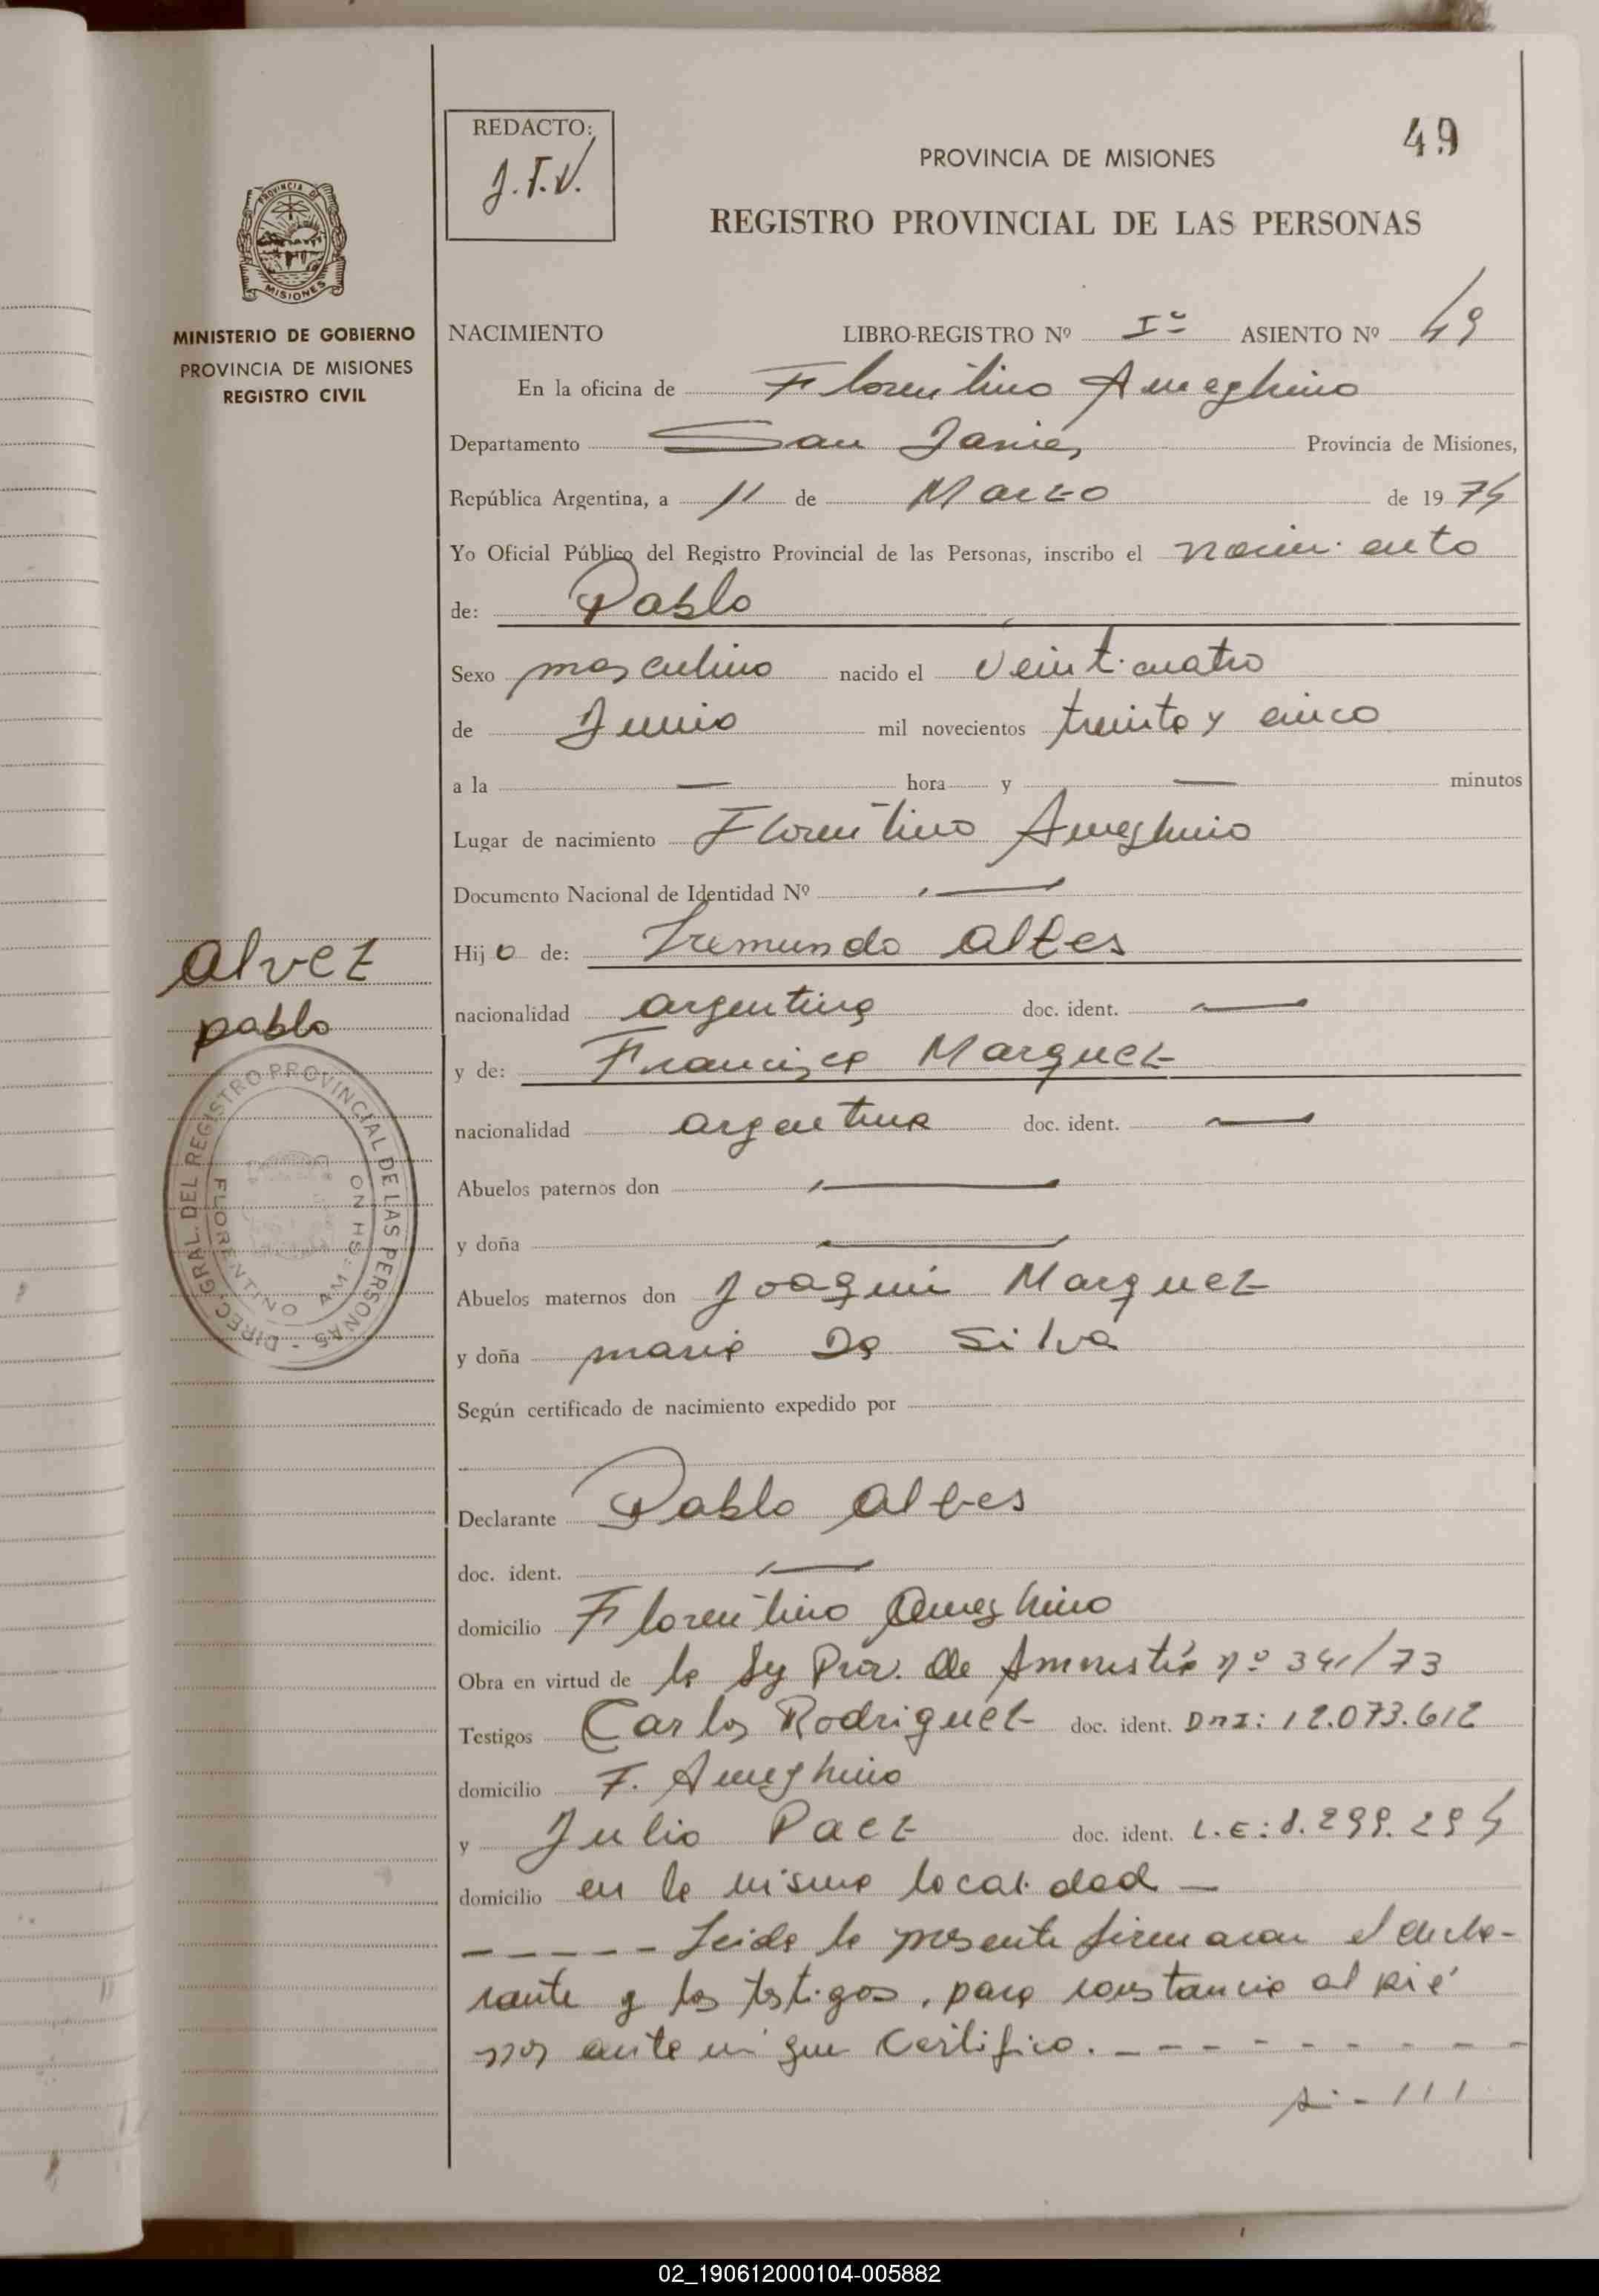 REDACTO:
J.T.V.
49
PROVINCIA DE MISIONES
REGISTRO PROVINCIAL DE LAS PERSONAS
PROVINCIA DE
MISIONES
MINISTERIO DE GOBIERNO
PROVINCIA DE MISIONES
REGISTRO CIVIL
NACIMIENTO LIBRO-REGISTRO Nº Iº ASIENTO Nº 49
En la oficina de Florentino Ameghino
Departamento San Javier Provincia de Misiones,
República Argentina, a 11 de Marzo de 1974
Yo Oficial Público del Registro Provincial de las Personas, inscribo el nacimiento
de: Pablo
Sexo masculino nacido el veinticuatro
de Junio mil novecientos treinta y cinco
a la — hora y — minutos
Lugar de nacimiento Florentino Ameghino
Documento Nacional de Identidad Nº —
Hijo de: Tremundo Alves
nacionalidad argentina doc. ident. —
y de: Francisca Marquez
nacionalidad argentina doc. ident. —
Abuelos paternos don —
y doña —
Abuelos maternos don Joaquin Marquez
y doña maria Da Silva
Según certificado de nacimiento expedido por
Declarante Pablo Alves
doc. ident. —
domicilio Florentino Ameghino
Obra en virtud de la Ley Prov. de Amnistía nº 341/73
Testigos Carlos Rodriguez doc. ident. DNI: 12.073.612
domicilio F. Ameghino
y Julio Paez doc. ident. L.E: 8.299.294
domicilio en la misma localidad —
- - - - - Leida la presente firmaran el decla-
rante y los testigos, para constancia al pié
por ante mi que Certifico. - - - - - - - - -
Alvez
pablo
DIREC. GRAL. DEL REGISTRO PROVINCIAL DE LAS PERSONAS
FLORENTINO AMEGHINO
02_190612000104-005882